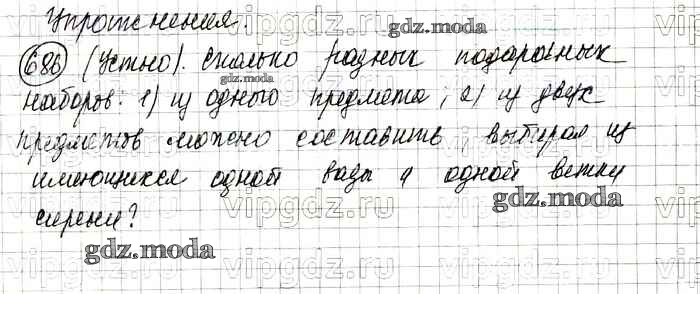 Упражнения.
gdz.moda
686 (Устно). Сколько разных подарочных
gdz.moda
наборов: 1) из одного предмета; 2) из двух
предметов можно составить, выбирая из
имеющихся одной вазы и одной ветки
gdz.moda
сирени?
gdz.moda
vipgdz.ru